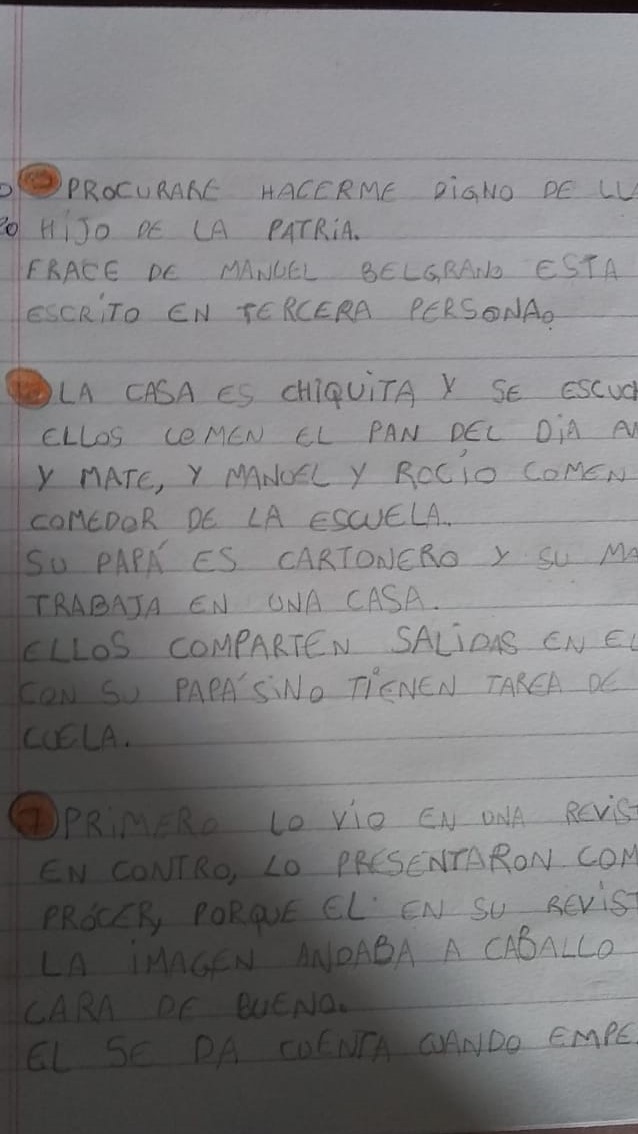 PROCURARE HACERME DIGNO DE LL
HIJO DE LA PATRIA.
FRACE DE MANUEL BELGRANO ESTA
ESCRITO EN TERCERA PERSONA.
LA CASA ES CHIQUITA Y SE ESCUCH
ELLOS COMEN EL PAN DEL DIA
Y MATE, Y MANUEL Y ROCIO COMEN
COMEDOR DE LA ESCUELA.
SU PAPÁ ES CARTONERO Y SU MA
TRABAJA EN UNA CASA.
ELLOS COMPARTEN SALIDAS EN EL
CON SU PAPÁ SINO TIENEN TAREA DE
CUELA.
7 PRIMERO LO VIO EN UNA REVIST
EN CONTRO, LO PRESENTARON COM
PRÓCER, PORQUE EL EN SU REVIST
LA IMAGEN ANDABA A CABALLO
CARA DE BUENO.
EL SE DA CUENTA CUANDO EMPE